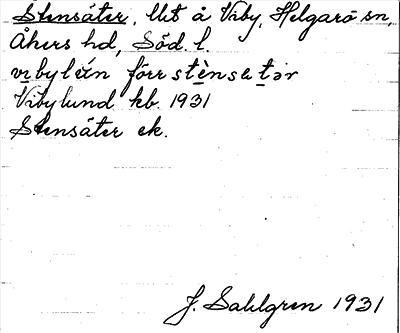 Stensäter, lht å Viby, Helgarö sn,
Åkers hd, Söd. l.
förr stènsetər
Vibylund kb. 1931
Stensäter ek.
J. Sahlgren 1931